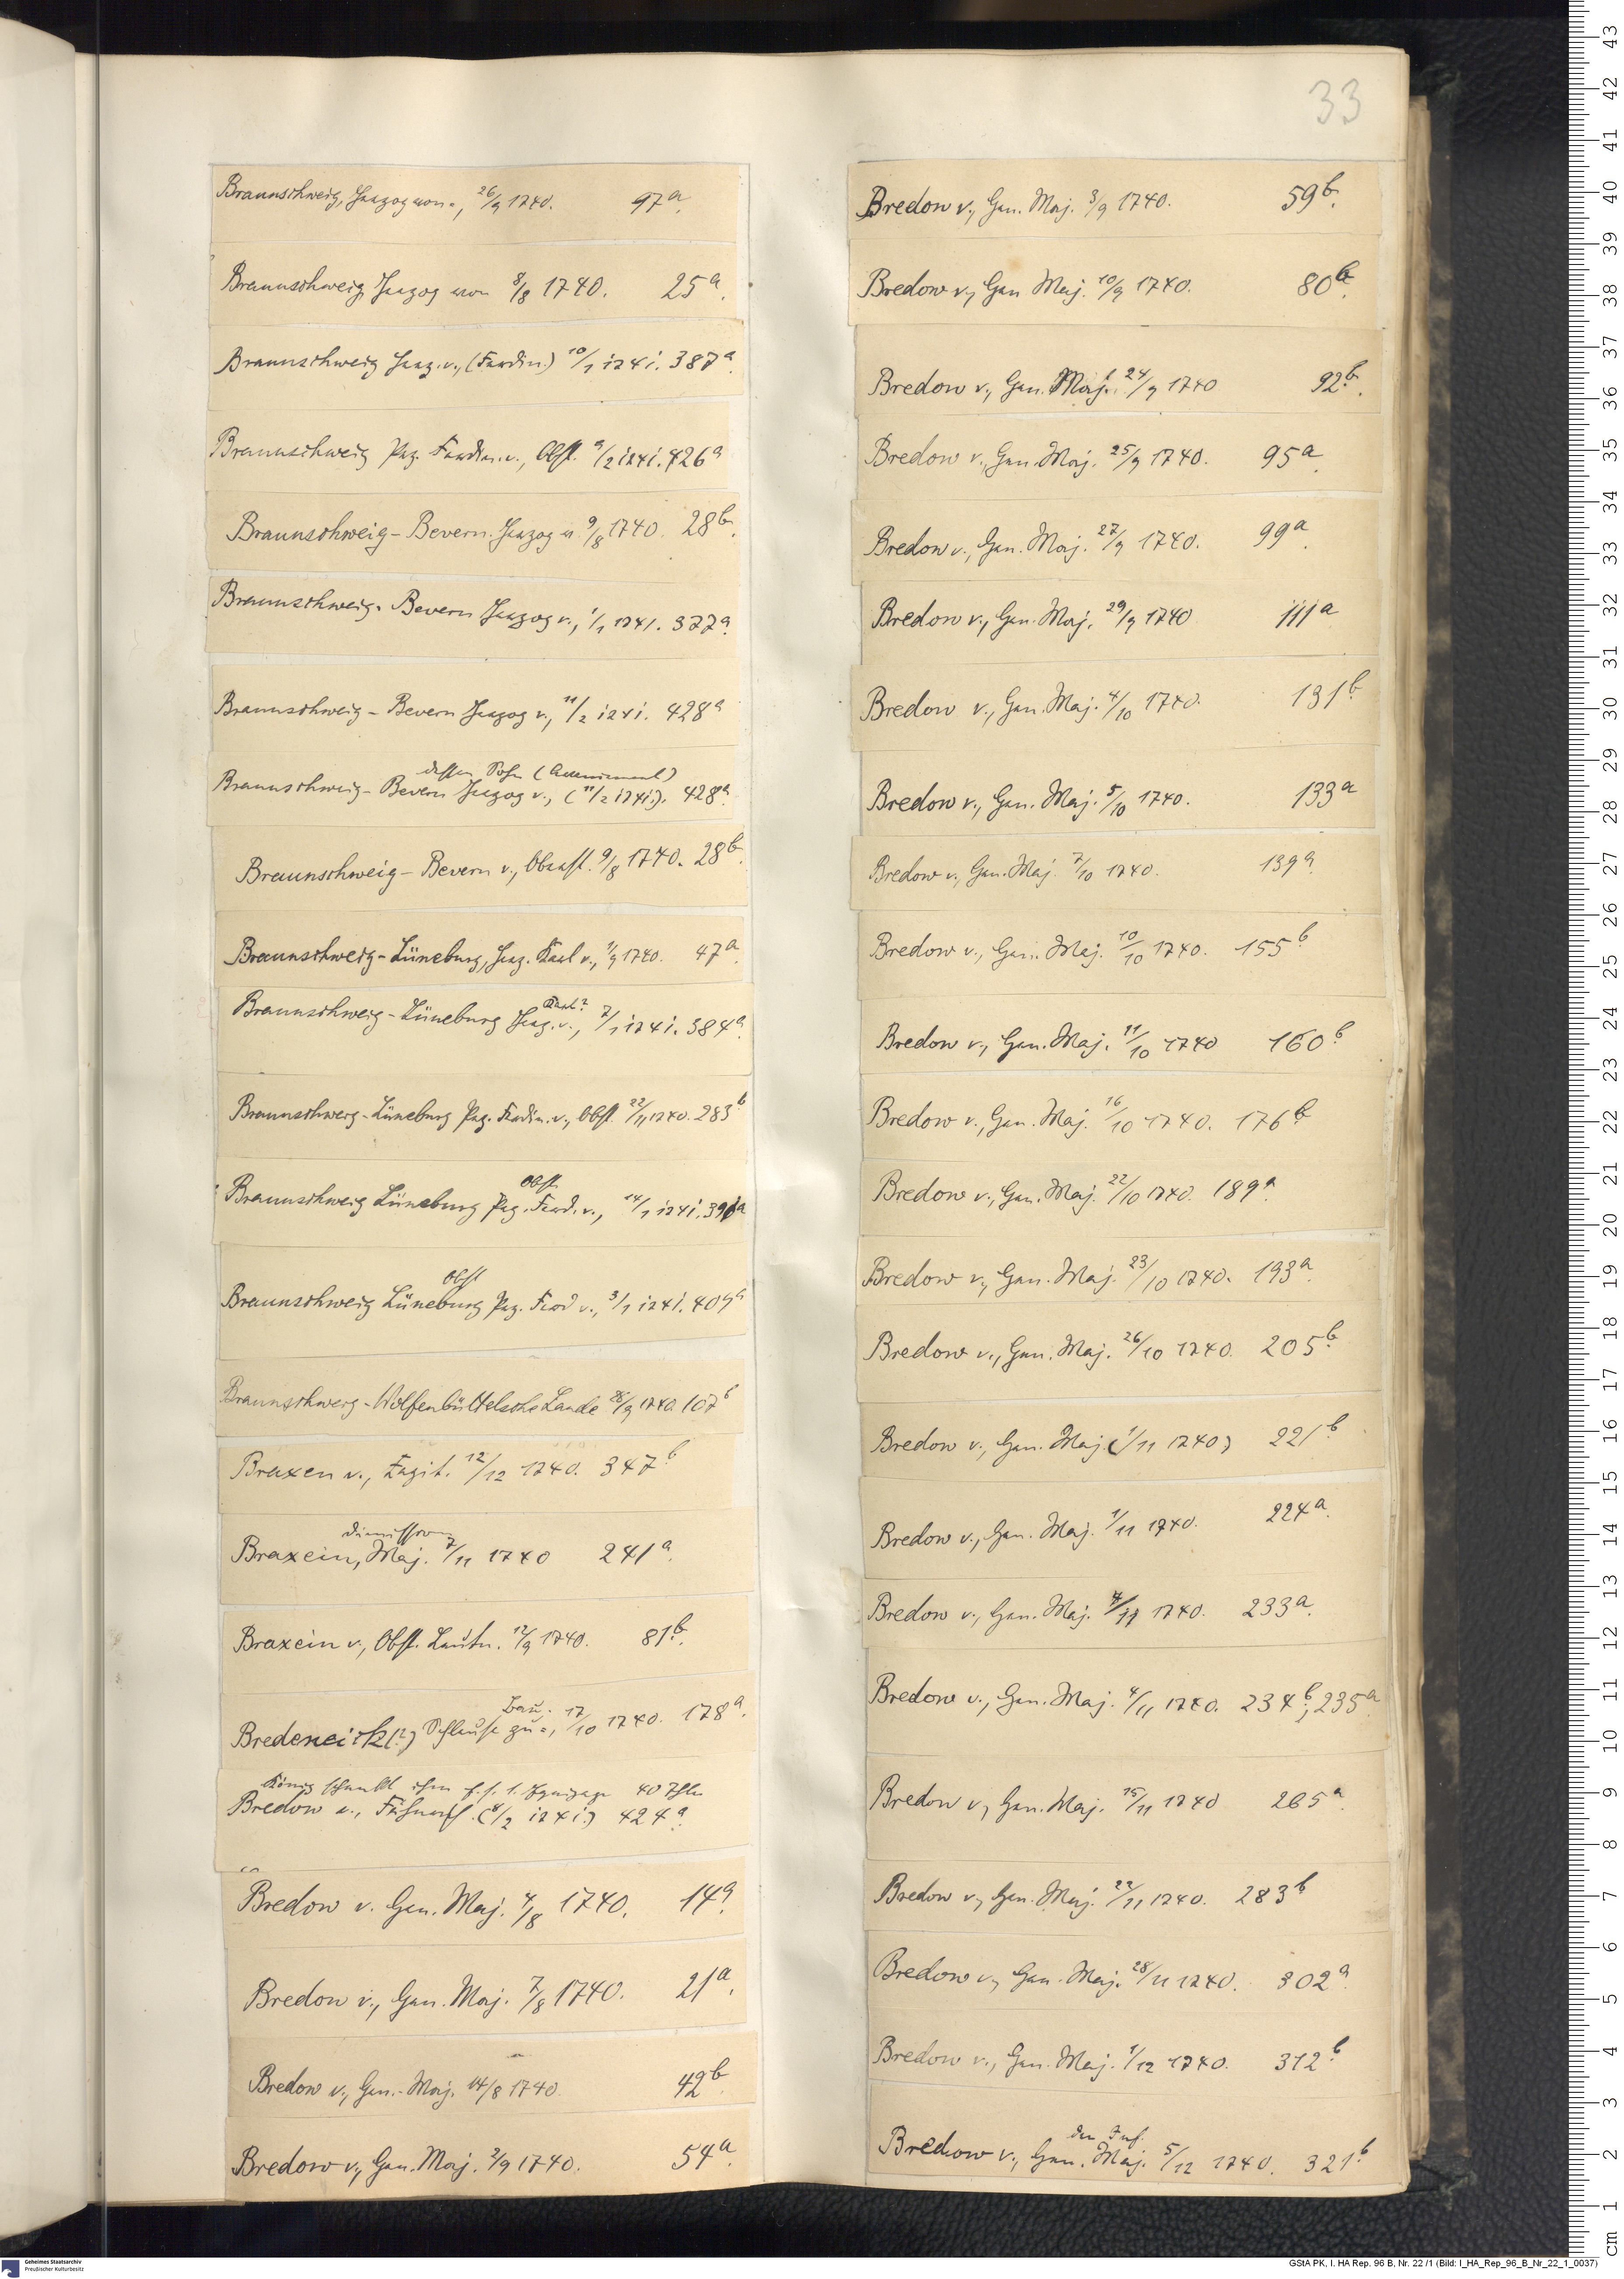 33
Braunschweig, Herzog von =, 26/9 1740. 97a.
Braunschweig, Herzog von 8/8 1740. 25a.
Braunschweig Herz. v., (Ferdin.) 10/1 1741. 387a.
Braunschweig Prz. Ferdin. v., Obst. 9/2 1741. 426a
Braunschweig - Bevern. Herzog v. 9/8 1740. 28b.
Braunschweig - Bevern Herzog v., 1/1 1741. 377a.
Braunschweig - Bevern Herzog v., 11/2 1741. 428a
dessen Sohn
Braunschweig - Bevern Herzog v., (11/2 1741.). 428a.
Braunschweig - Bevern v., Oberst. 9/8 1740. 28b.
Braunschweig - Lüneburg, Herz. Karl v., 1/9 1740. 47a.
Karl?
Braunschweig - Lüneburg Herz. v., 7/1 1741. 384a.
Braunschweig - Lüneburg Prz. Ferdin. v., Obst. 22/11 1740. 283b
Obst.
Braunschweig Lüneburg Prz. Ferd. v., 14/1 1741.
Obst
Braunschweig Lüneburg Prz. Ferd v., 3/1 1741. 409a
Braunschweig - Wolfenbüttelsche Lande 28/9 1740. 107b
Braxen v., Kapit. 12/12 1740. 347b
Dimission
Braxein, Maj. 7/11 1740 241a.
Braxein v., Obst. Leutn. 12/9 1740. 81b.
Bau.
(?) Schleuse zu =, 17/10 1740. 178a.
König schenkt ihm z. s. Equipage 40 Thlr
Bredow v., Fähnrich. (8/2 1741.) 424a.
Bredow v. Gen. Maj. 4/8 1740. 14a.
Bredow v., Gen. Maj. 7/8 1740. 21a.
Bredow v., Gen. Maj. 14/8 1740. 42b.
Bredow v., Gen. Maj. 2/9 1740. 54a.
Bredow v., Gen. Maj. 3/9 1740. 59b.
Bredow v., Gen Maj. 10/9 1740. 80b.
Bredow v., Gen. Maj. 24/9 1740 92b.
Bredow v., Gen. Maj. 25/9 1740. 95a.
Bredow v., Gen. Maj. 27/9 1740. 99a.
Bredow v., Gen. Maj. 29/9 1740 111a
Bredow v., Gen. Maj. 4/10 1740. 131b.
Bredow v., Gen. Maj. 5/10 1740. 133a
Bredow v., Gen. Maj. 7/10 1740. 139a.
Bredow v., Gen. Maj. 10/10 1740. 155b
Bredow v., Gen. Maj. 11/10 1740 160b.
Bredow v., Gen. Maj. 16/10 1740. 176b.
Bredow v., Gen. Maj. 22/10 1740. 189a.
Bredow v., Gen. Maj. 23/10 1740. 193a.
Bredow v., Gen. Maj. 26/10 1740. 205b.
Bredow v., Gen. Maj (1/11 1740) 221b
Bredow v., Gen. Maj. 1/11 1740. 224a.
Bredow v., Gen. Maj. 4/11 1740. 233a.
Bredow v., Gen. Maj. 4/11 1740. 234b, 235a
Bredow v., Gen. Maj. 15/11 1740 265a.
Bredow v., Gen. Maj. 22/11 1740. 283b
Bredow v., Gen. Maj. 28/11 1740. 302a.
Bredow v., Gen. Maj. 1/12 1740. 312b
der Inf.
Bredow v., Gen. Maj. 5/12 1740. 321b
Geheimes Staatsarchiv
Preußischer Kulturbesitz
GStA PK, I. HA Rep. 96 B, Nr. 22 /1 (Bild: I_HA_Rep_96_B_Nr_22_1_0037)
cm 1 2 3 4 5 6 7 8 9 10 11 12 13 14 15 16 17 18 19 20 21 22 23 24 25 26 27 28 29 30 31 32 33 34 35 36 37 38 39 40 41 42 43